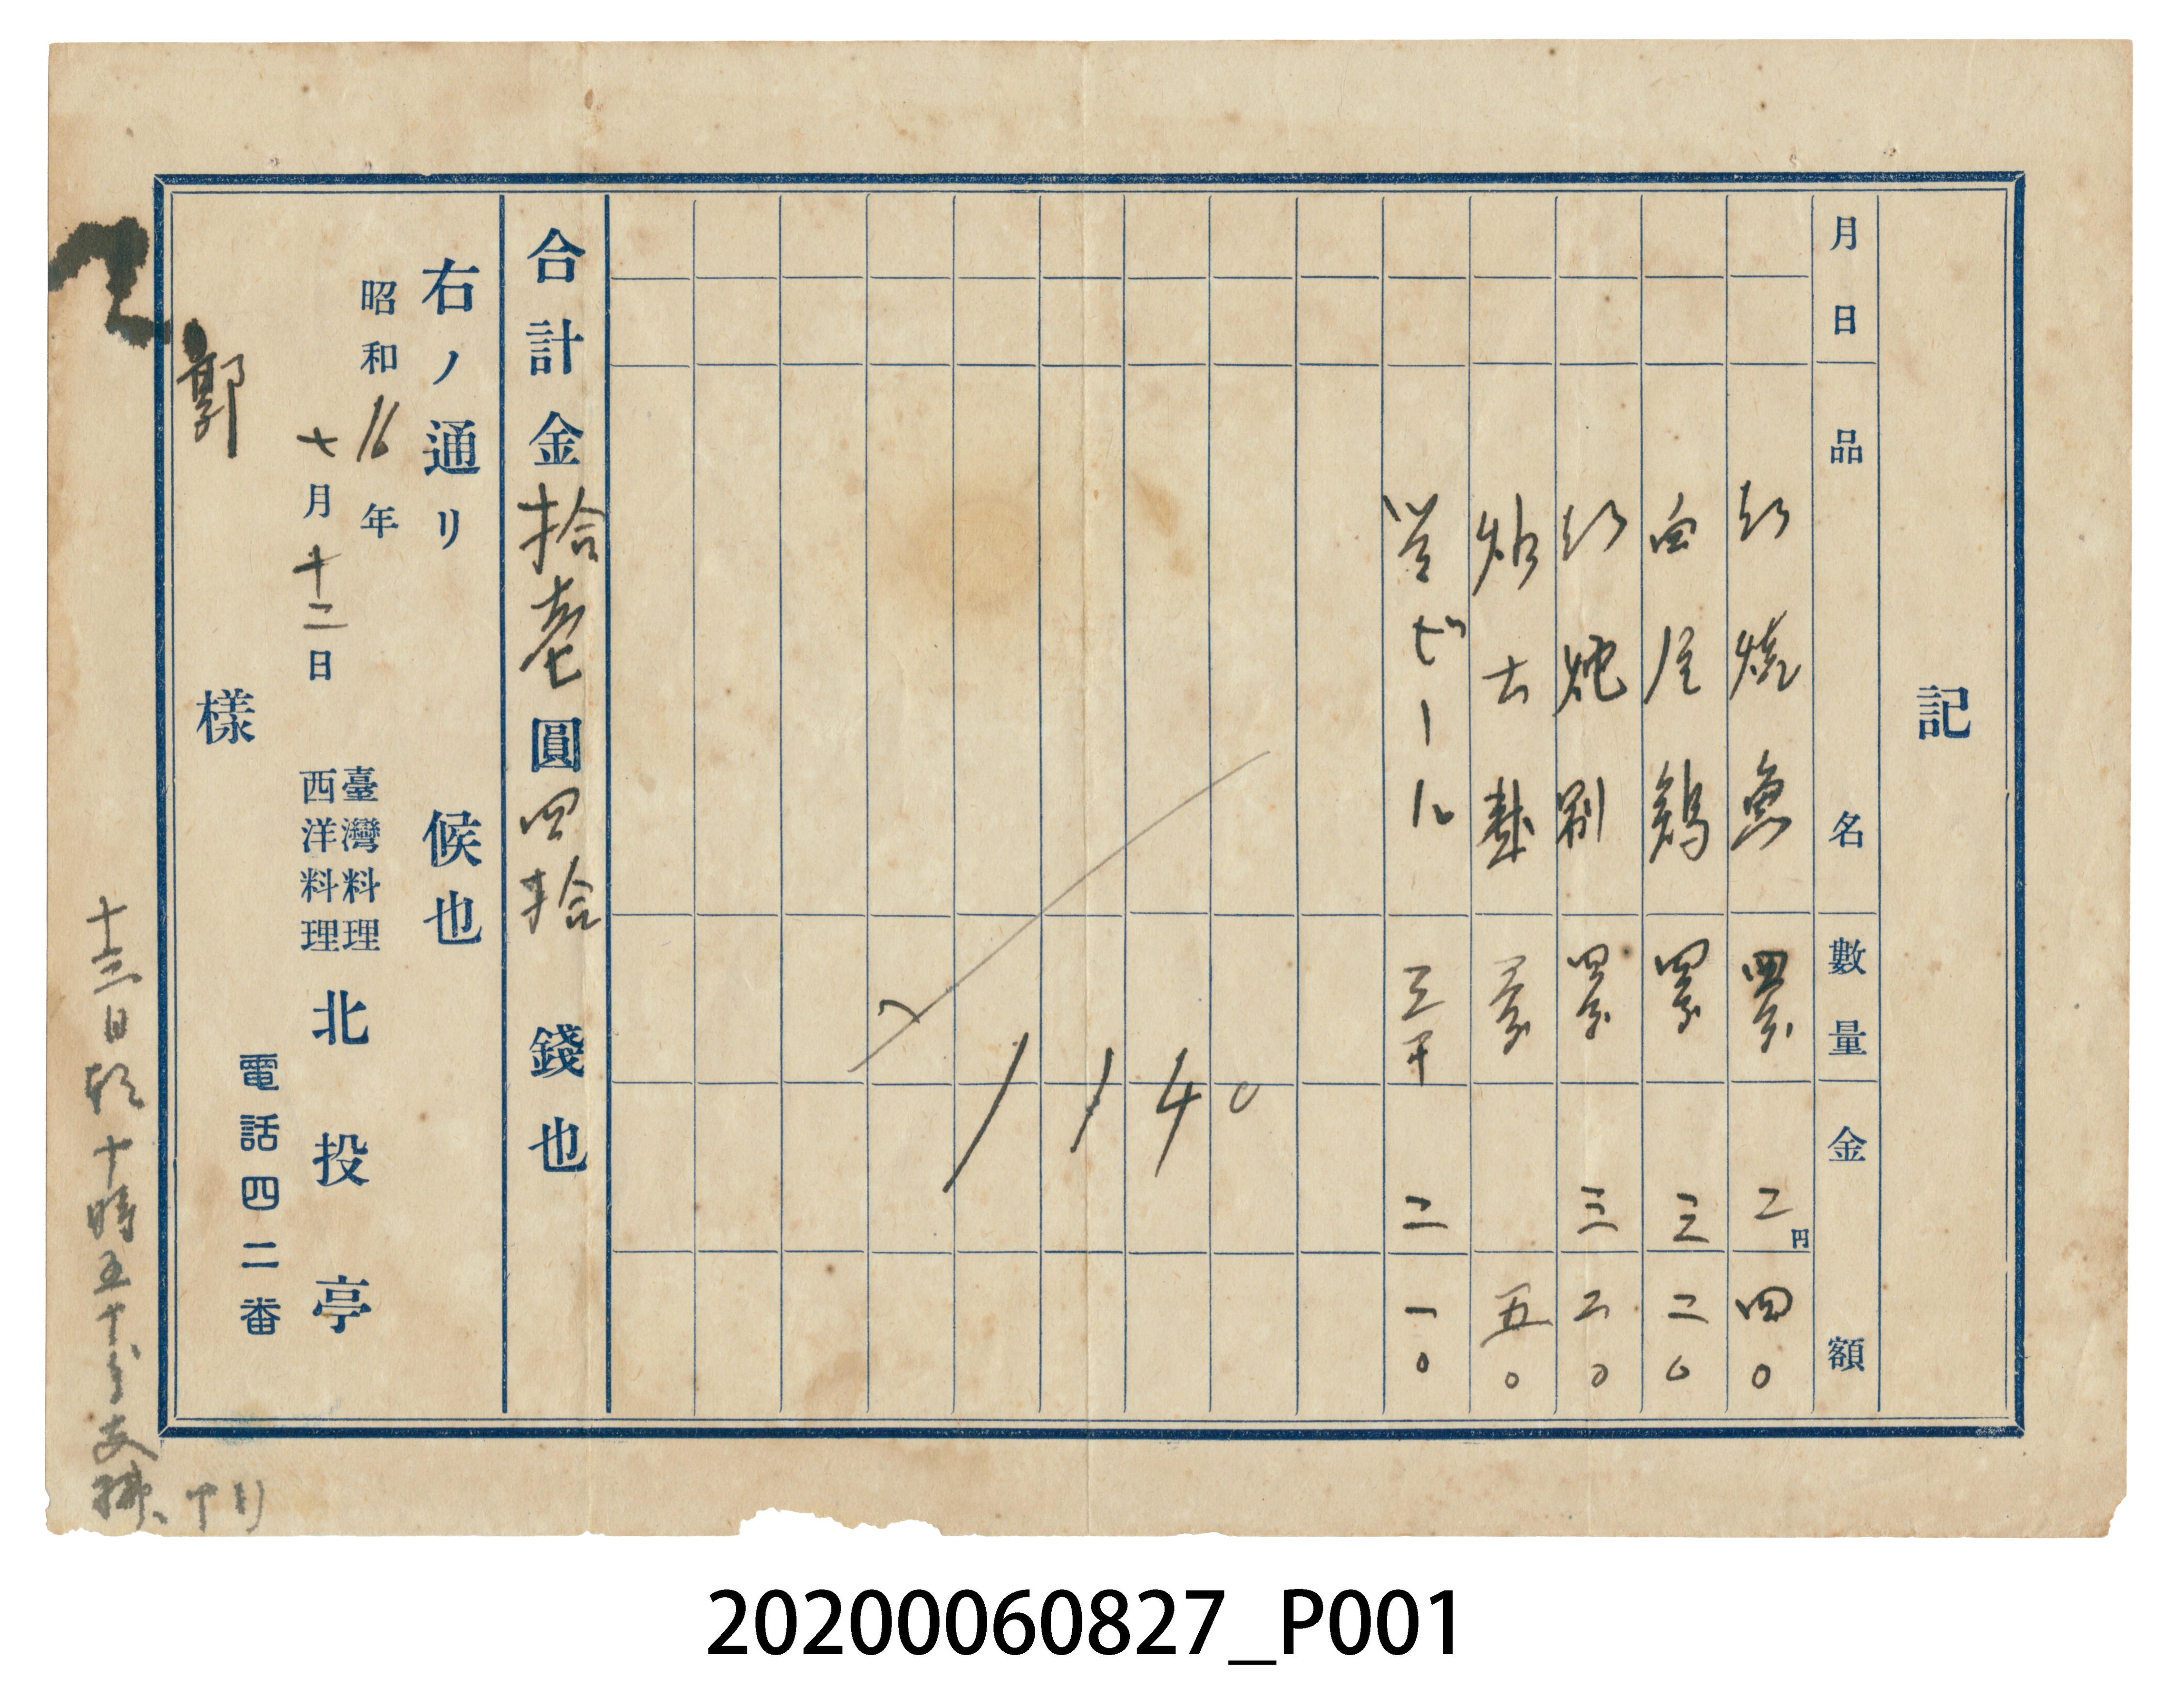 記
月日 品名 數量 金額
紅燒魚 四分 二円四〇
白片鷄 四分 三二〇
紅炖 四分 三二〇
五〇
ビール 三本 二一〇
1140
合計金拾壱圓四拾錢也
右ノ通リ候也
昭和16年
七月十二日
臺灣料理
西洋料理
北投亭
電話四二番
郭 樣
十三日朝十時五十分支拂
20200060827_P001